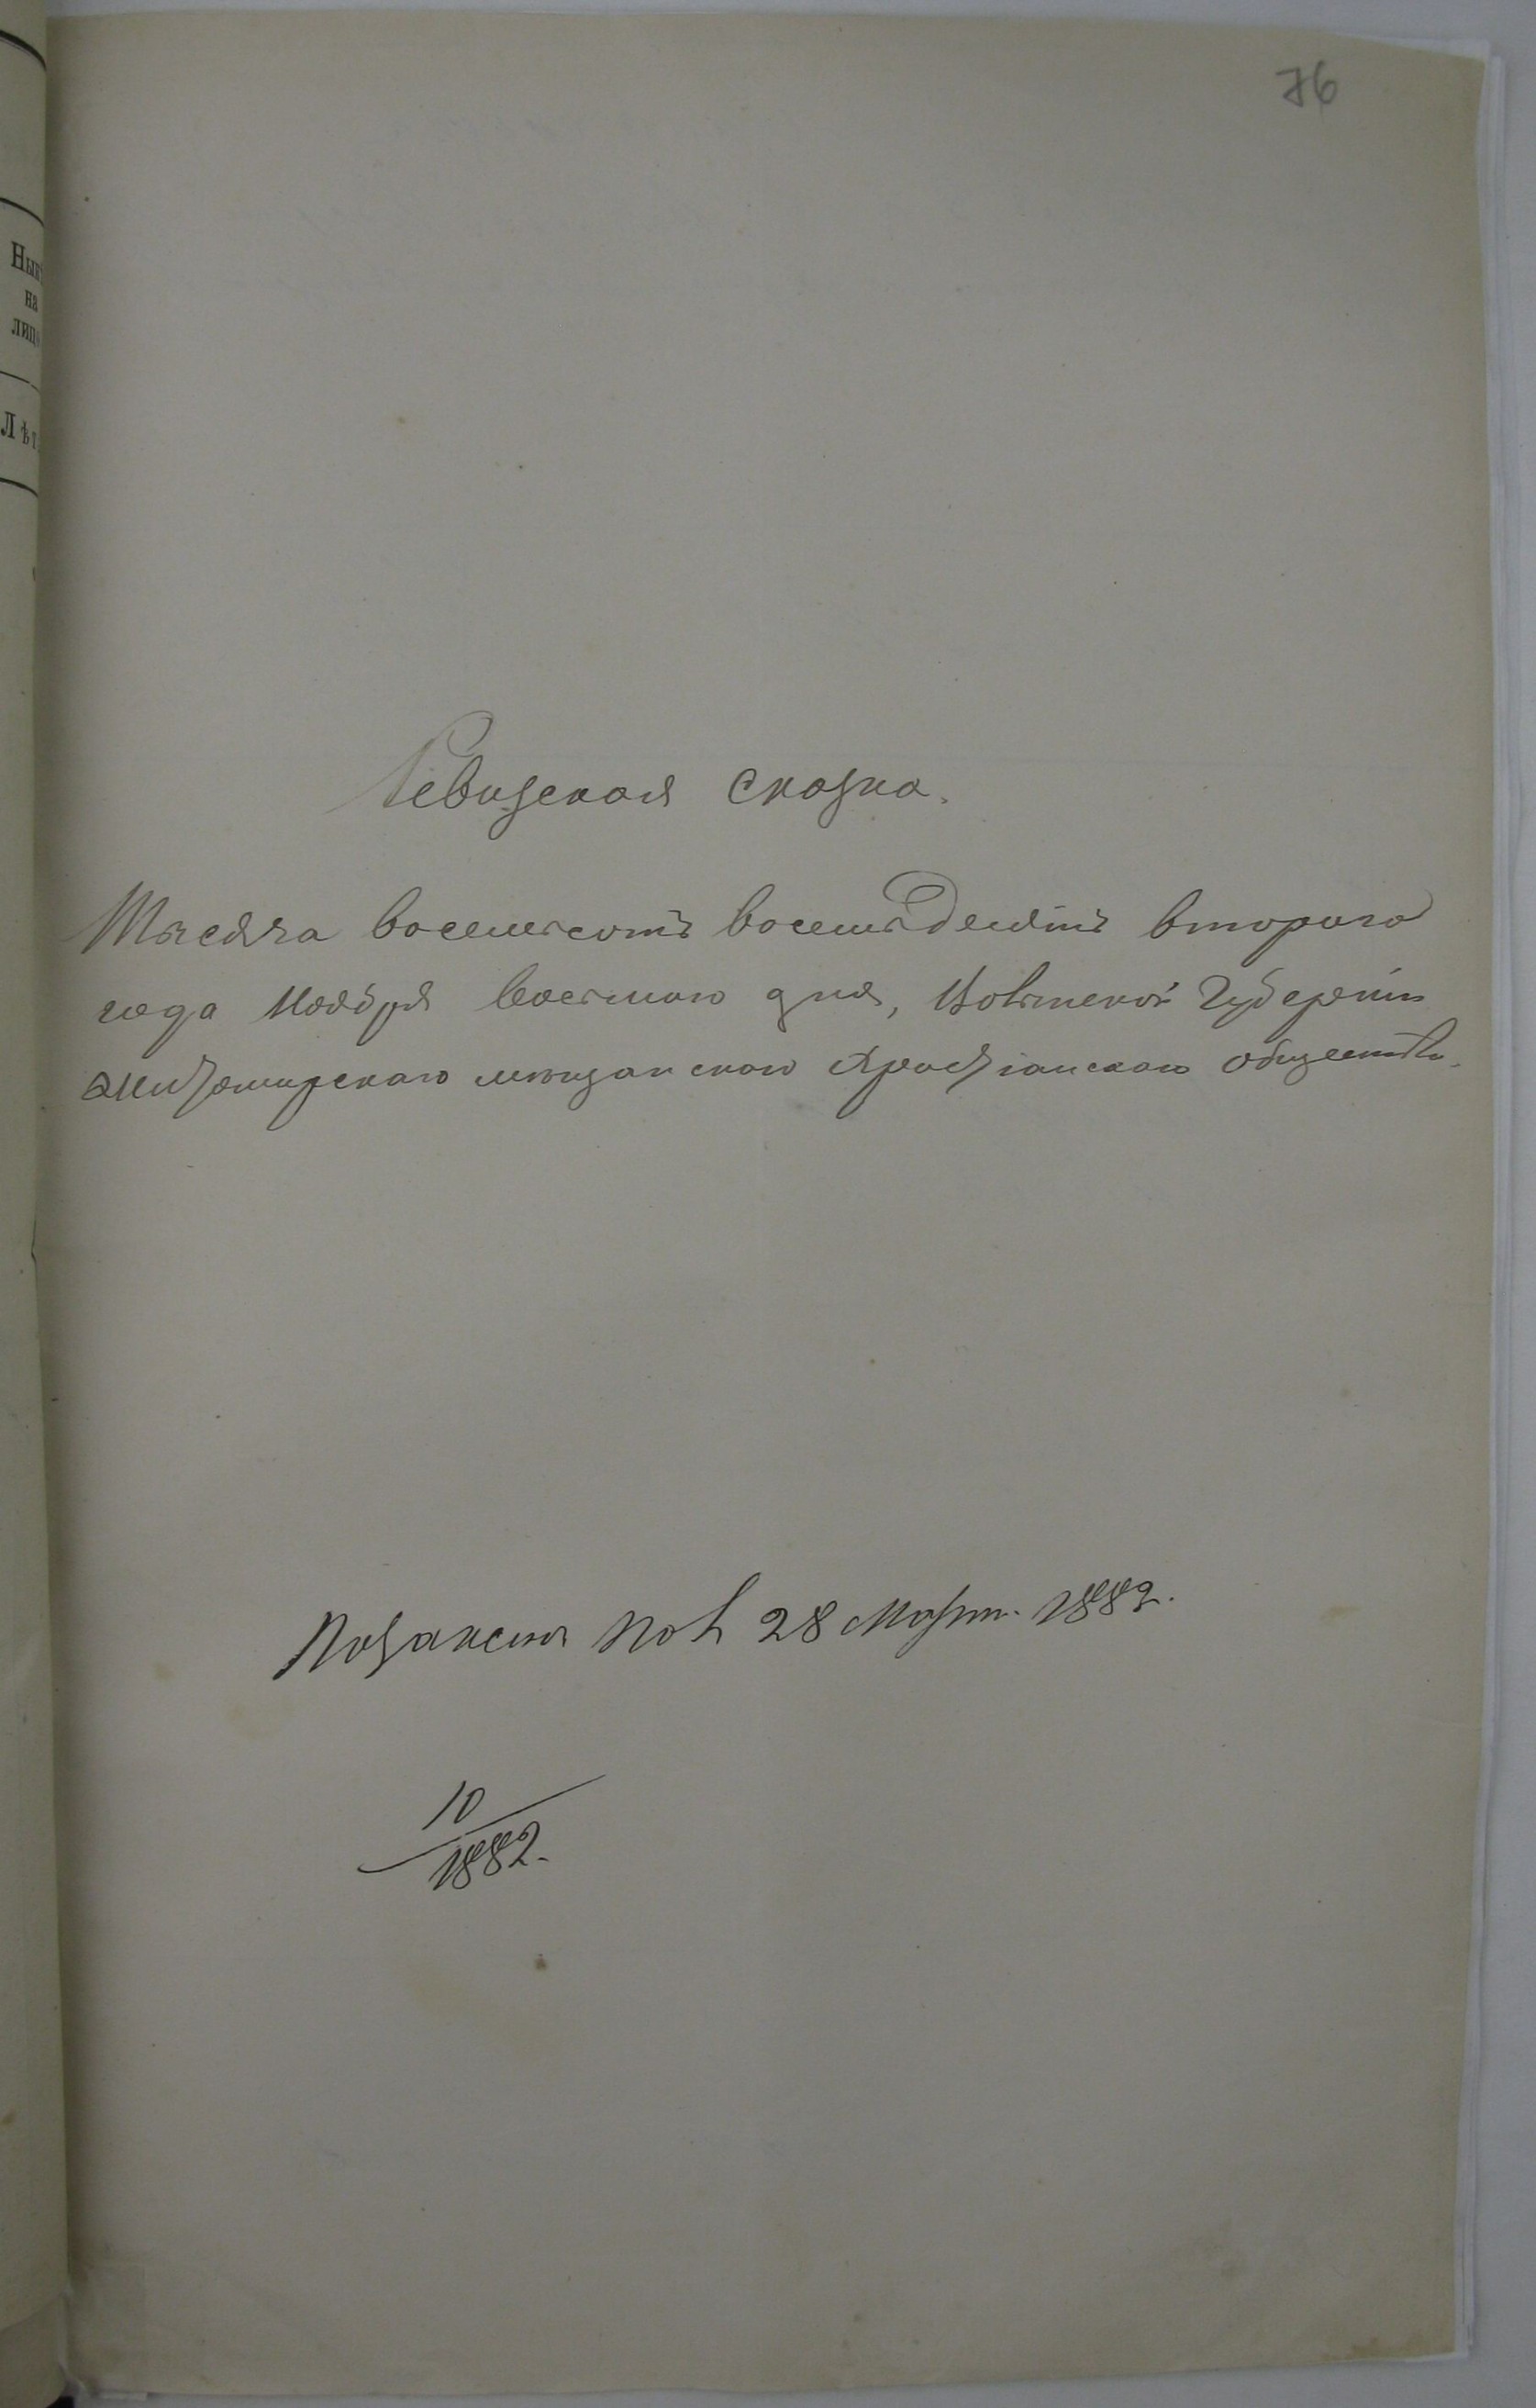 76
Ны
на
лиц
Лѣт
Ревизская сказка.
Тысяча восемьсотъ восемьдесятъ второго
года Ноября восьмаго дня, Волынской Губерніи
Житомирскаго мѣщанскаго Христіанскаго общества.
по 28 Март. 1882.
10
1882.